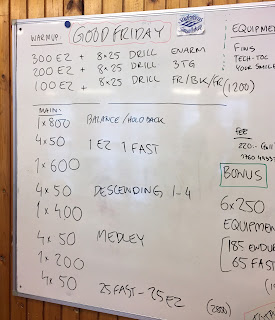 WARMUP: GOOD FRIDAY
300 EZ + 8×25 DRILL
200 EZ + 8×25 DRILL 3TG
100 EZ + 8×25 DRILL FR/BK/FR
(1200)
MAIN:
1×800 BALANCE/HOLD BACK
4×50 1 EZ 1 FAST
1×600
4×50 DESCENDING 1-4
1×400
4×50 MEDLEY
1×200
4×50 25 FAST - 25 EZ
(2800)
EQUIPMEN
FINS
TECH-TOC
YOUR SMILE
BONUS
6×250
EQUIPMEN
185 ENDU
65 FAST